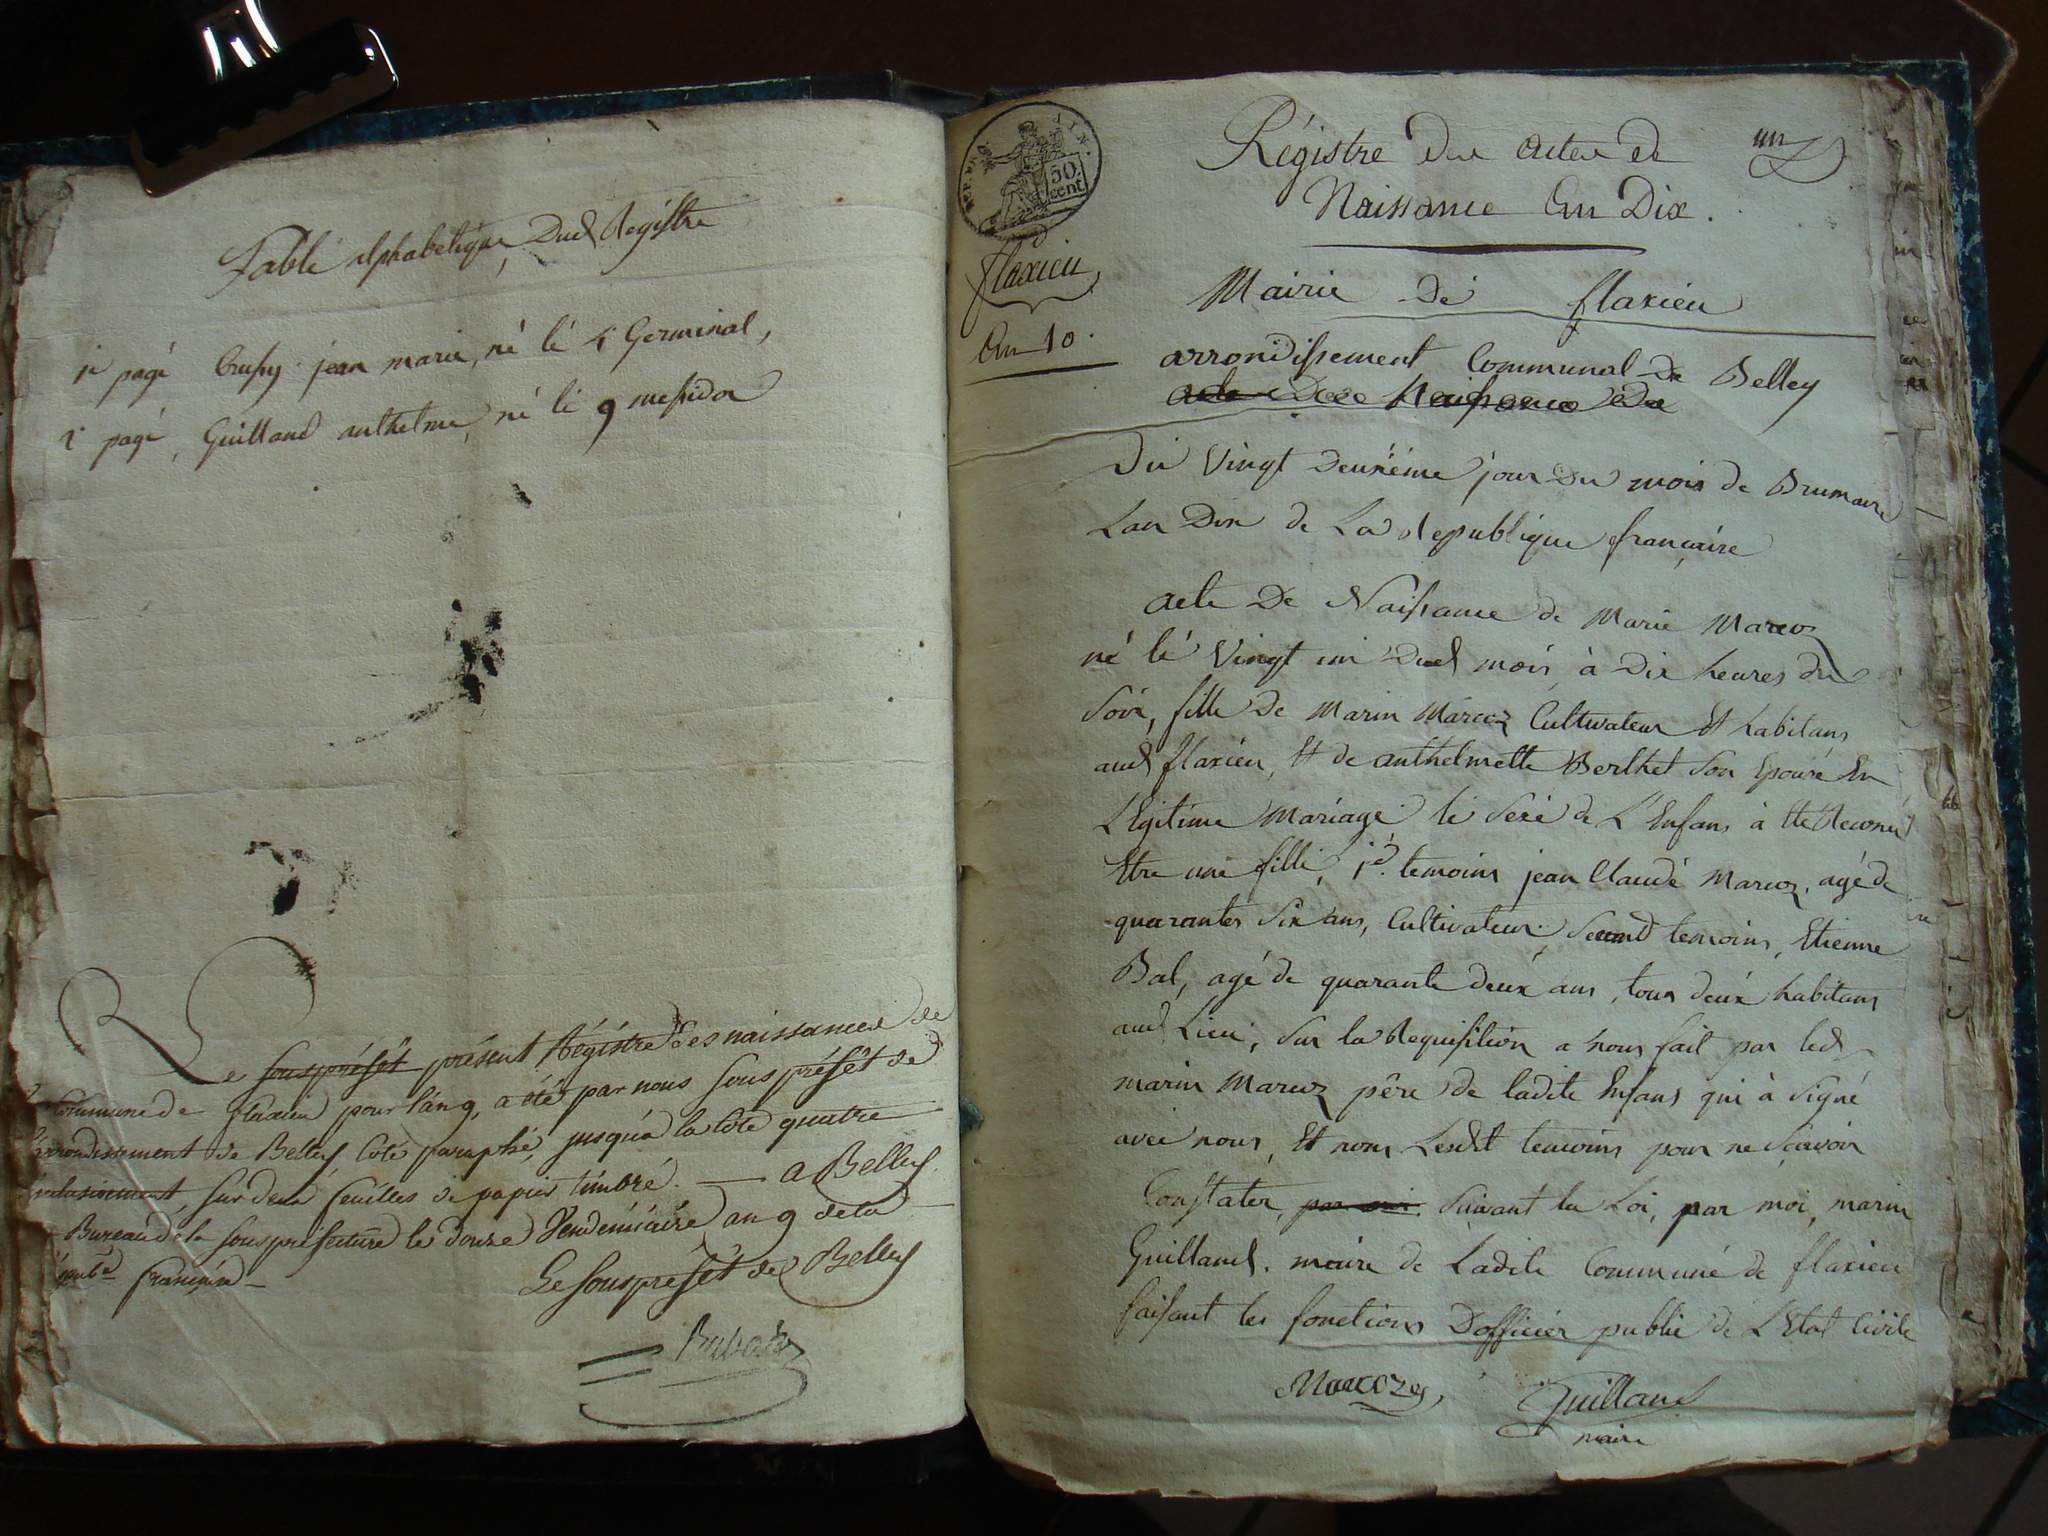 Table alphabetique Dud Registre
1e page Crussy jean marie, né lé 4 Germinal,
2e page, Guilland anthelme, né lé 9 messidor
Le souspréfét présent Régistre des naissances de
Commune de flaxieu pour l'an 9, a été par nous souspréfét de
arrondissement de Belley Coté paraphé, jusqu'à la Cote quatre
inclusivement, sur deux feuilles de papier timbré. — a Belley
Bureau de la souspréfecture le douze Vendemiaire an 9 de la
française
Le Souspréfét de Belley
50 cent
flaxieu
An 10.
un
Régistre des actes de
Naissance An Dix.
Mairie De flaxieu
arrondissement Communal De Belley
acte Des Naissance Du
Du Vingt Deuxiéme jour Du mois de Brumaire
Lan Dix de La Republique françaire
acte De Naissance de Marie Marcoz
né lé Vingt un Dud mois, à Dix heures du
Soir, fille de Marin Marcoz Cultivateur Et habitans
aud flaxieu, Et de anthelmette Berthet Son Epouse En
L'Egitime Mariage le Sexe de L'Enfans à Ete Reconnu
Etre une fille, 1er. temoins jean Claude Marcoz, agé de
quarantes Six ans, Cultivateur Second temoins, Etienne
Bal, agé de quarante deux ans, tous deux habitans
aud Lieu, Sur la Requisition a nous fait par led
marin Marcoz pêre de ladite Enfans qui à Signé
avec nous, Et nons Lesdt temoins pour ne Scavoir
Constater, par moi Suivant la Loi, par moi, marin
Guilland. maire de Ladite Communé de flaxieu
faisant les fonctions D'officier public de L'Etat Civile
Marcoz
Guilland
maire